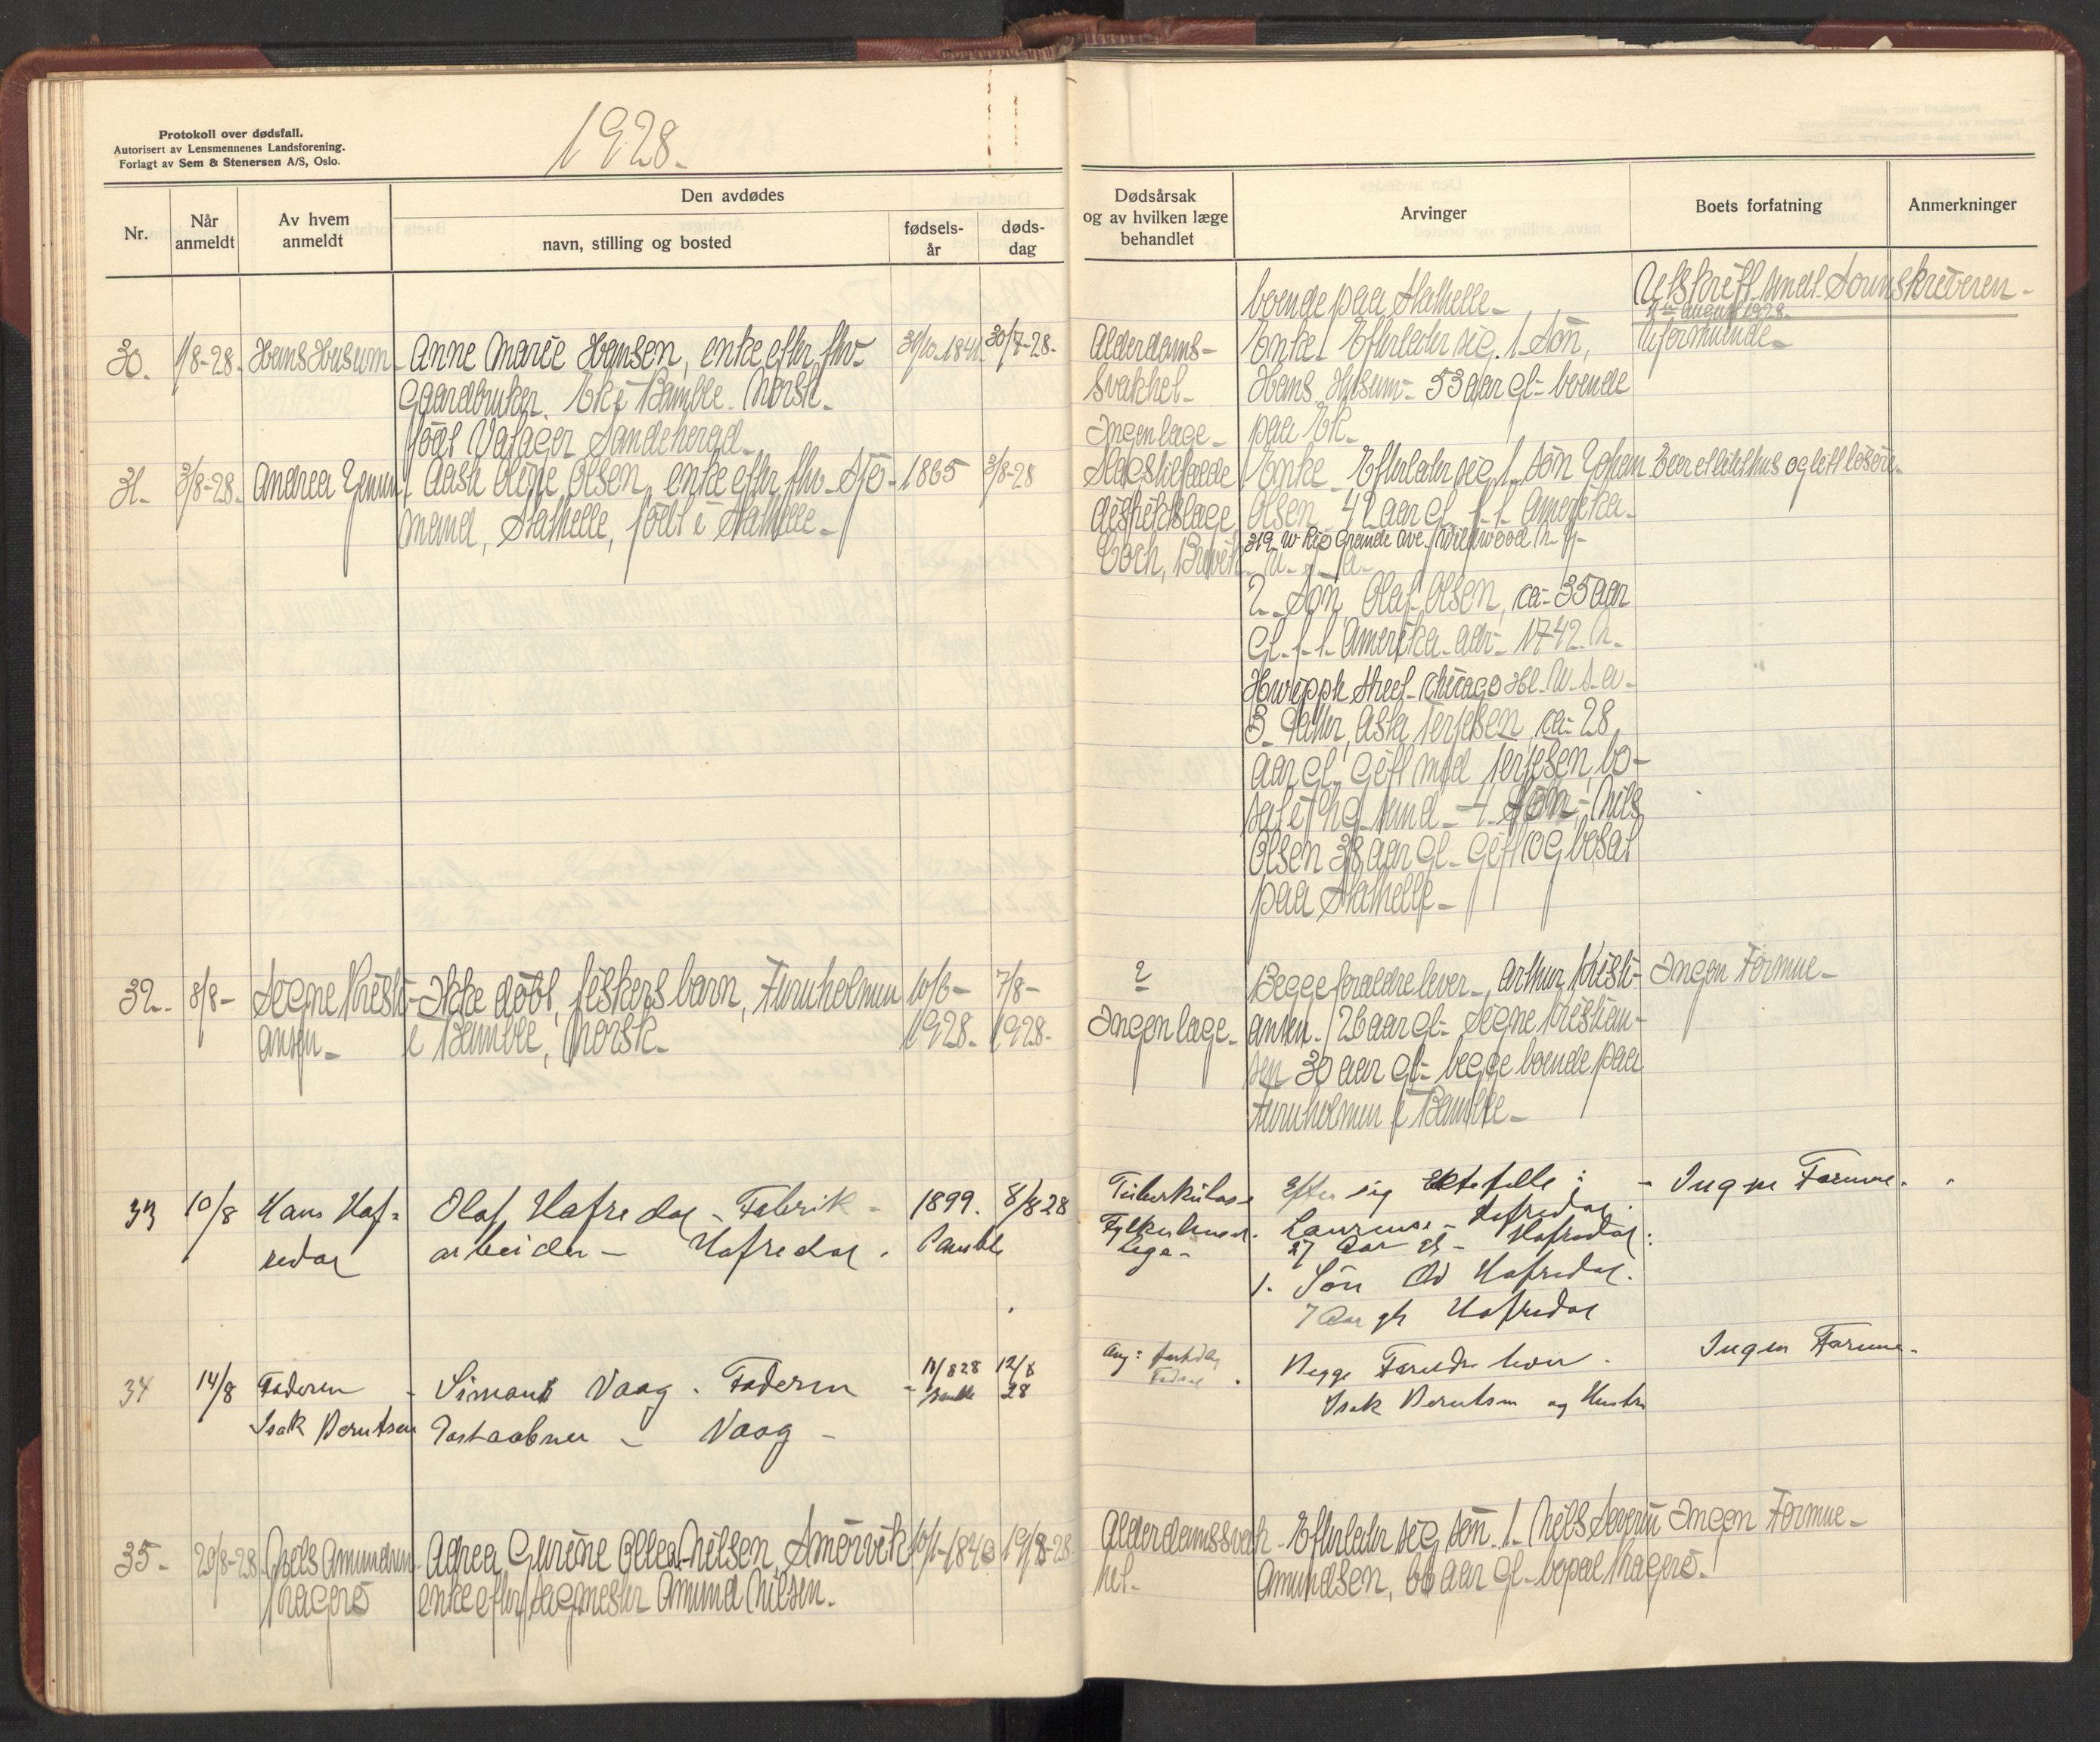 Protokoll over dødsfall.
Autorisert av Lensmennenes Landsforening.
Forlagt av Sem & Stenersen A/S, Oslo.
1928.
Nr.
Når anmeldt
Av hvem anmeldt
Den avdødes
navn, stilling og bosted
fødsels-
år
døds-
dag
30. 1/8-28. Hans Husum Anne Marie Hansen, enke efter fhv. 30/7-28.
Gaardbruker. Ek i Bamble. Norsk.
født Sandeherad.
31. 3/8-28. Andrea Olsen, enke efter fhv. Sjø- 1865 3/8-28
mand, Stathelle, født i Stathelle.
32. 8/8- Signe Kristi- Ikke døbt, fiskers barn, Furuholmen 10/6- 7/8-
ansen. i Bamble, Norsk. 1928. 1928.
33 10/8 Hans Haf- Olaf Hafredal - Fabrik- 1899. 8/8 28
redal arbeider - Hafredal. Bamble
34 14/8 Faderen - Vaag. Faderen 12/8
Isak Berntsen Postaabner - Vaag - Bamble 28
35. 20/8-28 Amundsen Nilsen, Smørvik 19/8-28
Kragerø enke efter Sagmester Amund Nilsen.
Dødsårsak
og av hvilken læge
behandlet
Arvinger
Boets forfatning
Anmerkninger
boende paa Stathelle. Utskrift sendt Sorenskriveren.
august 1928.
Alderdoms- Enke. Efterlater sig. 1. Søn, Uformuende.
svakhet. Hans Husum. 53 aar gl. boende
Ingen læge. paa Ek.
Slagtilfælde Enke. Efterlater sig 1. søn Johan Eier et litet hus og litt løsøre.
distriktslæge Olsen 42 aar gl. f. t. Amerika.
Coch, Brevik. 319 W Rio Grande Ave. Wildwood N. J.
U. S. A.
2. Søn Olaf Olsen, ca. 35 aar
gl. f. t. Amerika. adr. 1742 N.
Street. Chicago Ill. U. S. A.
3. Datter, Asta Terjesen, ca. 28
aar gl. gift med Terjesen, bo-
sat i 4. Søn. Nils
Olsen 38 aar gl. gift og bosat
paa Stathelle.
? Begge forældre lever. Arthur Kristi- Ingen Formue.
Ingen læge. ansen. 26 aar gl. Signe Kristian-
sen 30 aar gl. begge boende paa
Furuholmen i Bamble.
Tuberkulose Efter sig Ektefelle: - Ingen Formue.
lege. Hafredal.
27 Aar gl - Hafredal.
1. Søn Hafredal.
7 Aar gl Hafredal
Begge Foreldre lever. Ingen Formue.
Isak Berntsen og Hustru
Alderdomssvak- Efterlater sig søn. 1. Nils Severin Ingen Formue.
het. Amundsen, 66 aar gl. bopæl Kragerø.